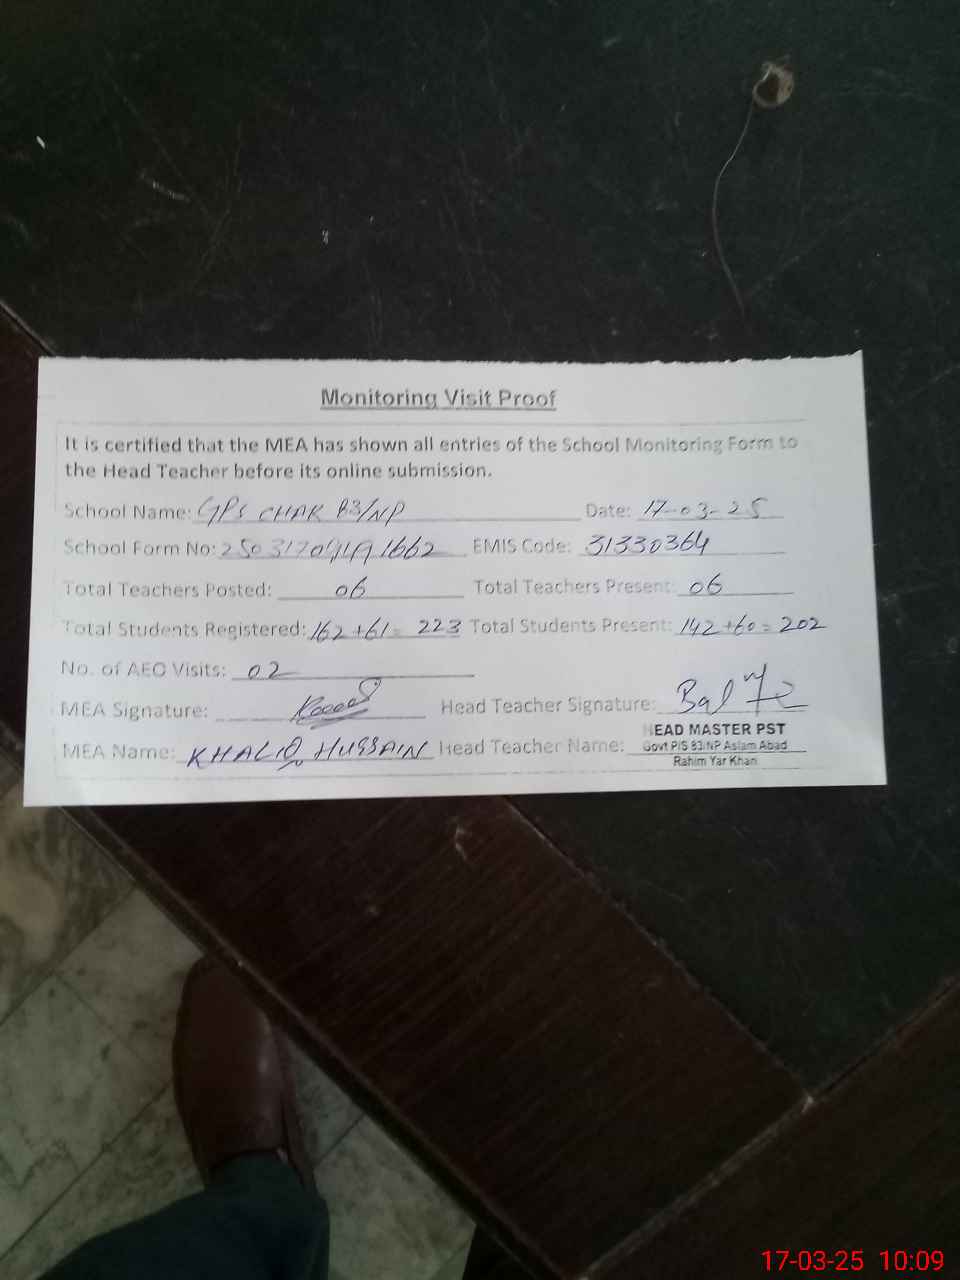 Monitoring Visit Proof
It is certified that the MEA has shown all entries of the School Monitoring Form to
the Head Teacher before its online submission.
School Name: GPS CHAK 83/NP Date: 17-03-25
School Form No: EMIS Code: 31330364
Total Teachers Posted: 06 Total Teachers Present: 06
Total Students Registered: 162+61= 223 Total Students Present: 142+60=202
No. of AEO Visits: 02
MEA Signature: Head Teacher Signature:
MEA Name: KHALIQ HUSSAIN Head Teacher Name:
HEAD MASTER PST
Govt P/S 83/NP Aslam Abad
Rahim Yar Khan
17-03-25 10:09